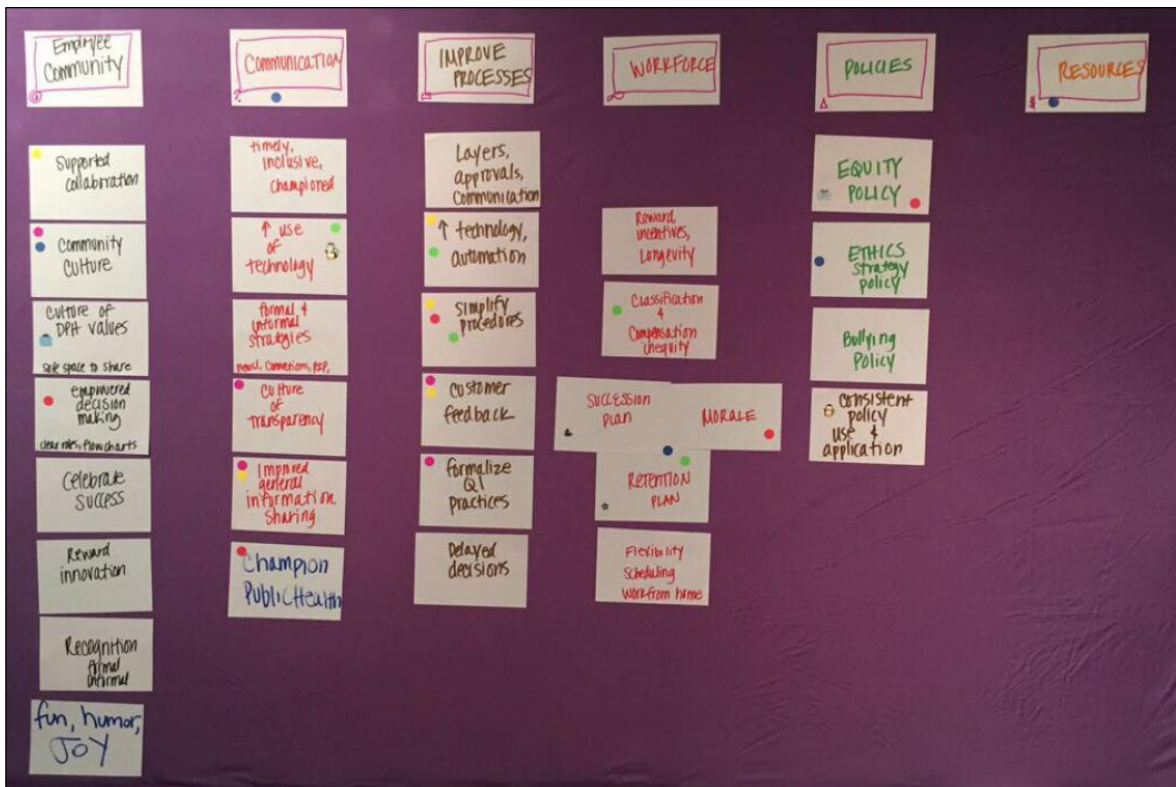 Employee
Community
Supported
collaboration
Community
Culture
Culture of
DPH values
safe space to share
empowered
decision
making
clear roles, flowcharts
Celebrate
Success
Reward
innovation
Recognition
formal
informal
fun, humor,
JOY
COMMUNICATION
timely,
inclusive,
championed
↑ use
of
technology
formal &
informal
strategies
Culture
of
transparency
Improved
general
information
Sharing
Champion
Public Health
IMPROVE
PROCESSES
Layers,
approvals,
Communication
↑ technology,
automation
Simplify
procedores
Customer
feedback
formalize
QI
practices
Delayed
decisions
WORKFORCE
Reward,
incentives,
Longevity
Classification
&
Compensation
inequity
SUCCESSION
Plan
MORALE
RETENTION
PLAN
Flexibility
Scheduling
Work from home
POLICIES
EQUITY
POLICY
ETHICS
Strategy
policy
Bullying
Policy
consistent
policy
use &
application
RESOURCES